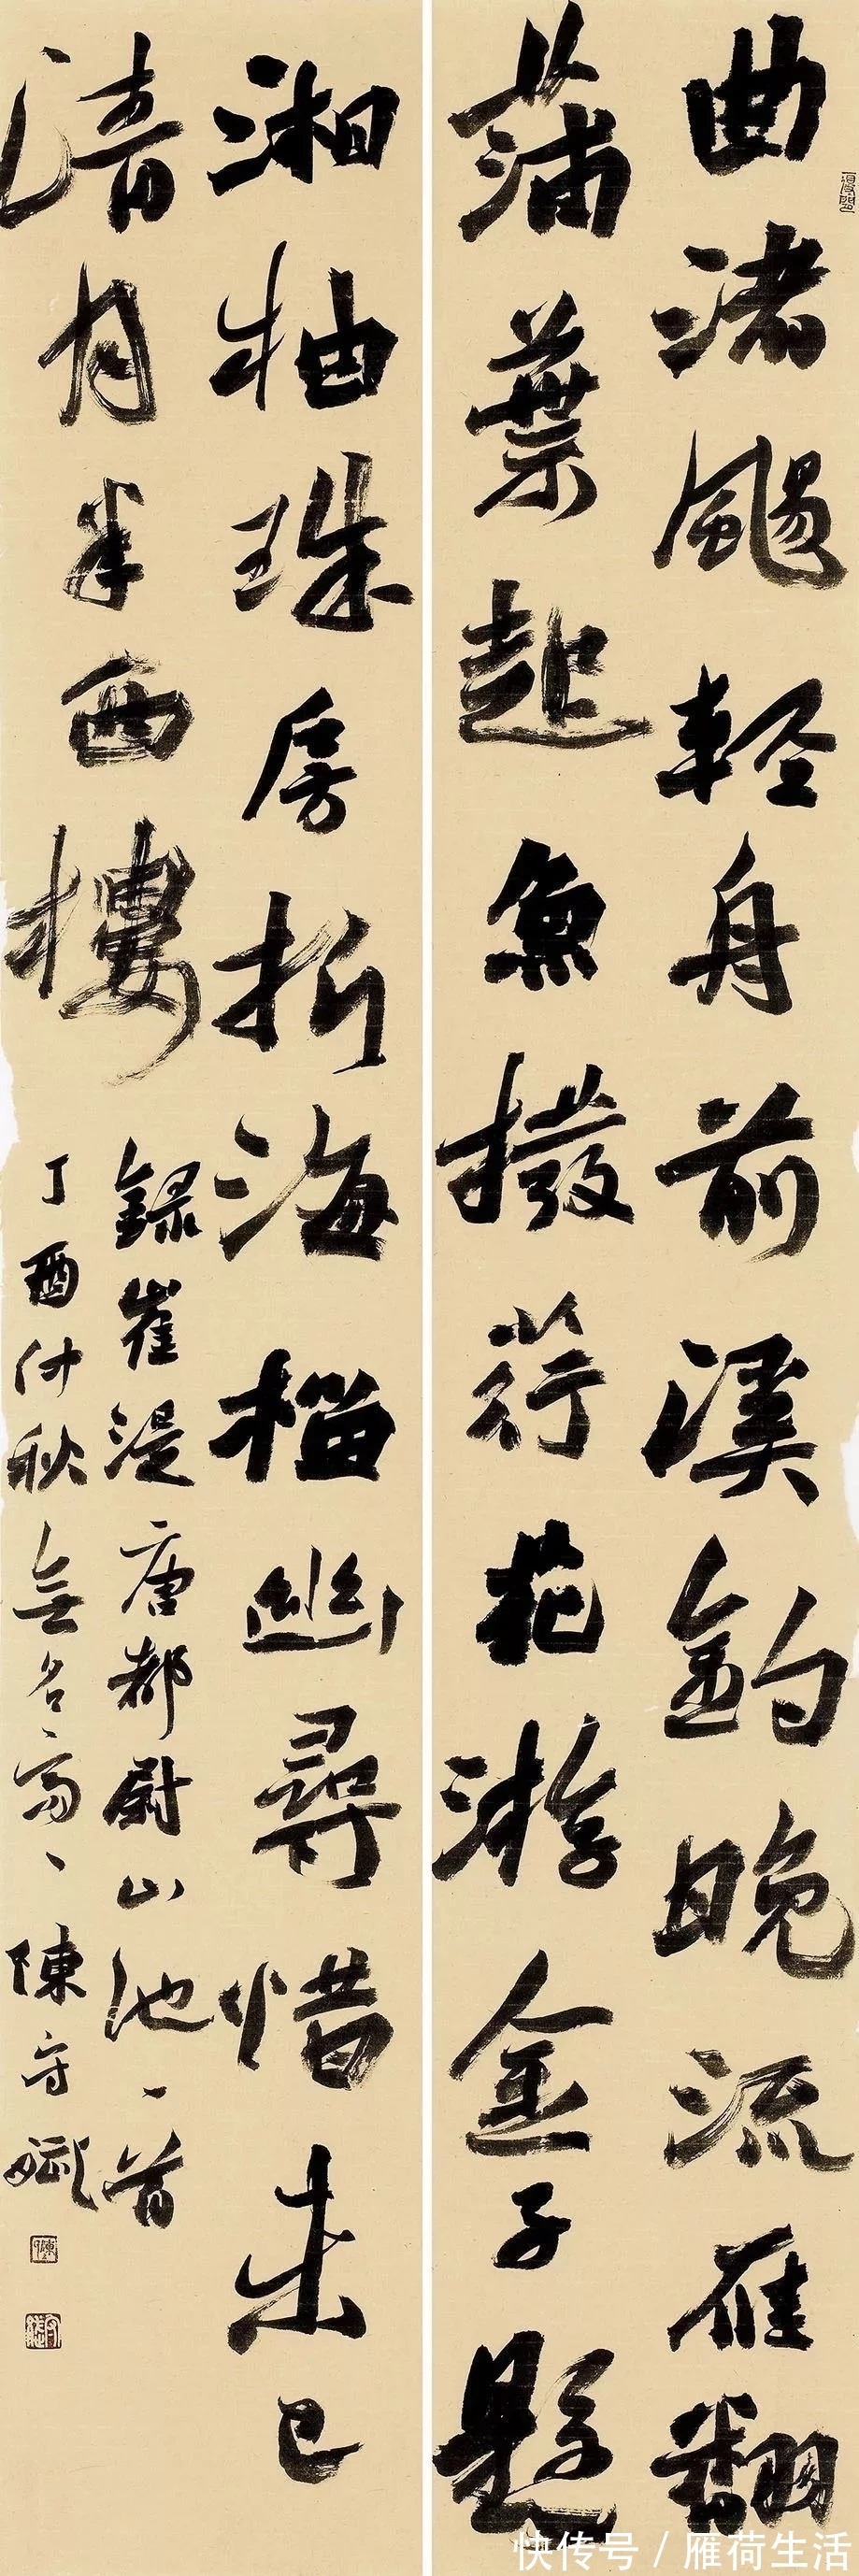 曲渚颺輕舟前溪釣晚流雁翻
蒲葉起魚撥荇花游金子懸
湘柚珠房折海榴幽尋惜未已
清月半西樓
錄崔湜唐都尉山池一首
丁酉仲秋無名齋主陳守
快传号 / 雁荷生活